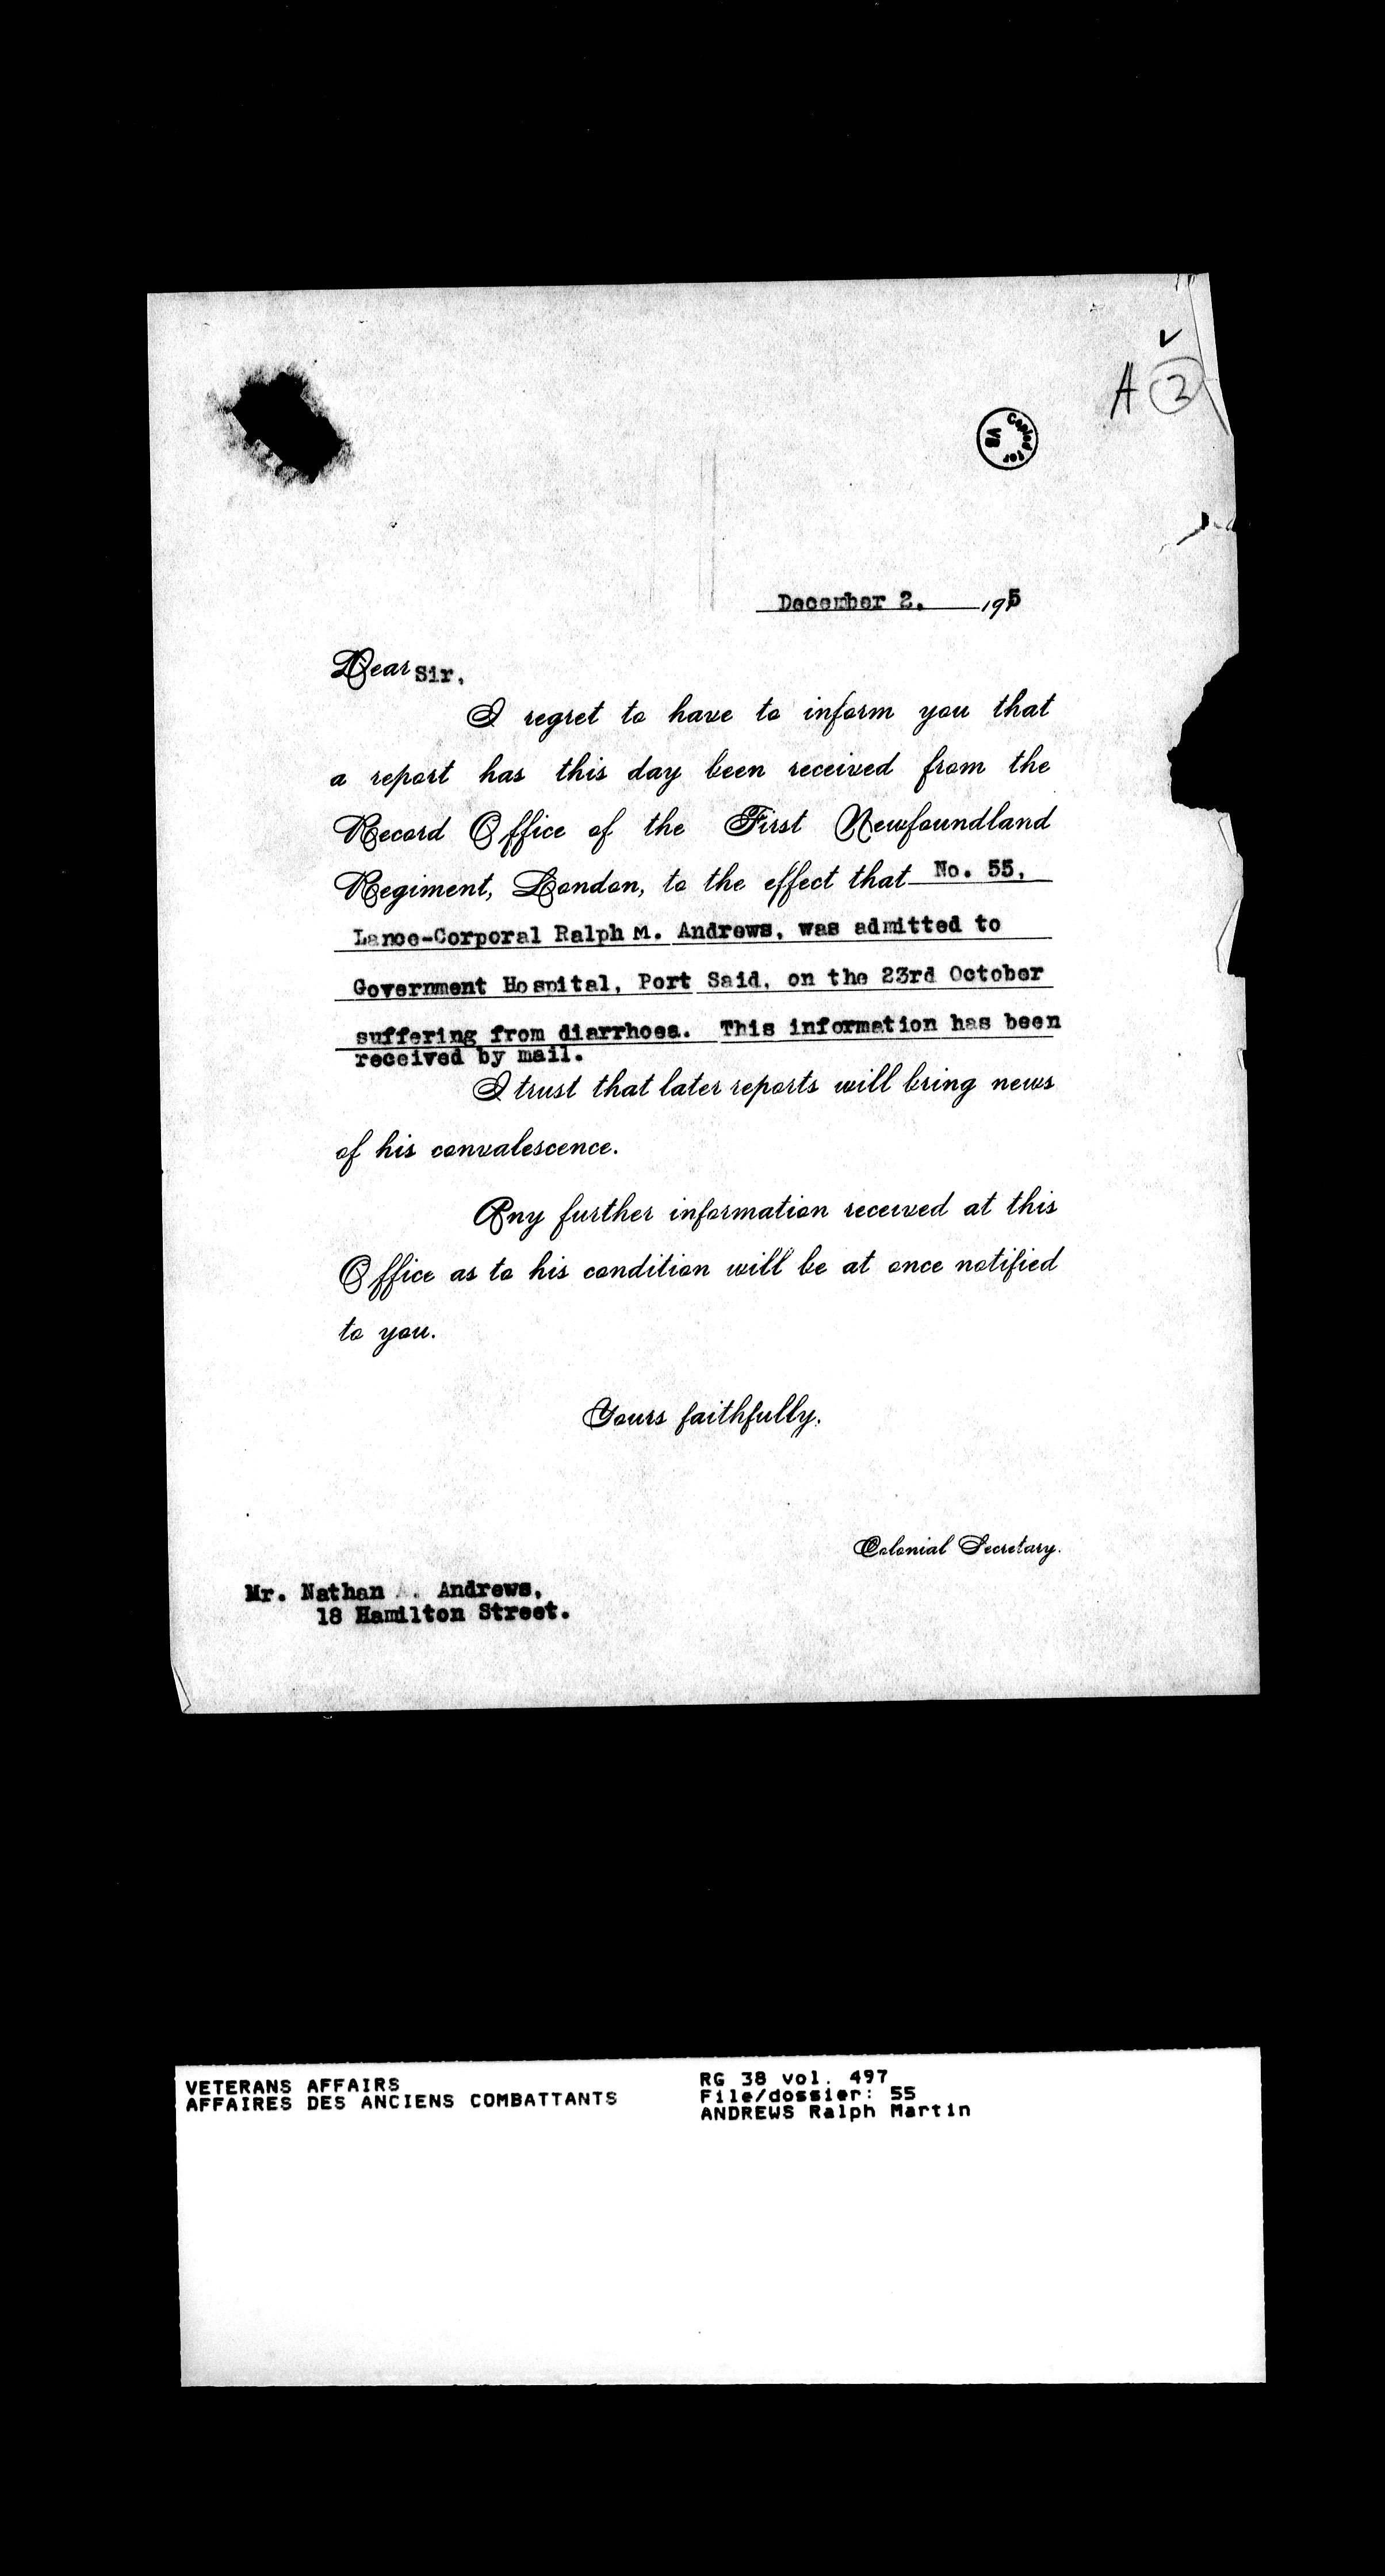 A 2
Copied for
December 2. 1915
Dear Sir,
I regret to have to inform you that
a report has this day been received from the
Record Office of the First Newfoundland
Regiment, London, to the effect that No. 55,
Lance-Corporal Ralph M. Andrews, was admitted to
Government Hospital, Port Said, on the 23rd October
suffering from diarrhoea. This information has been
received by mail.
I trust that later reports will bring news
of his convalescence.
Any further information received at this
Office as to his condition will be at once notified
to you.
Yours faithfully,
Colonial Secretary.
Mr. Nathan Andrews,
18 Hamilton Street.
VETERANS AFFAIRS RG 38 vol. 497
AFFAIRES DES ANCIENS COMBATTANTS File/dossier: 55
ANDREWS Ralph Martin